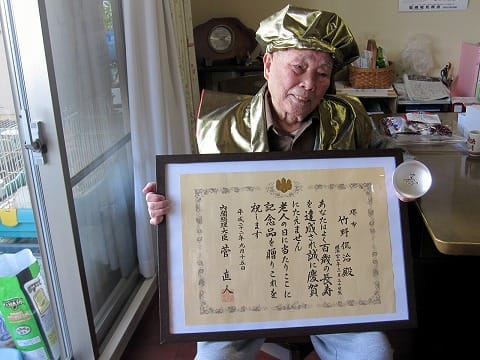 堺市
竹野侃治殿
あなたはよく百歳の長寿
を達成され誠に慶賀
にたえません
老人の日に当たりここに
記念品を贈りこれを
祝します
平成二十二年九月十五日
内閣総理大臣 菅直人